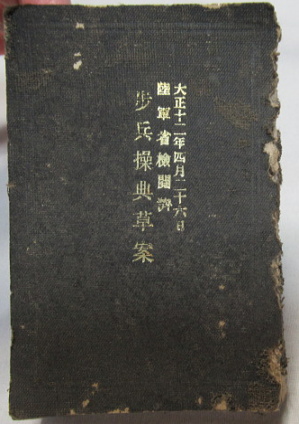 大正十二年四月二十六日
陸軍省檢閲濟
步兵操典草案